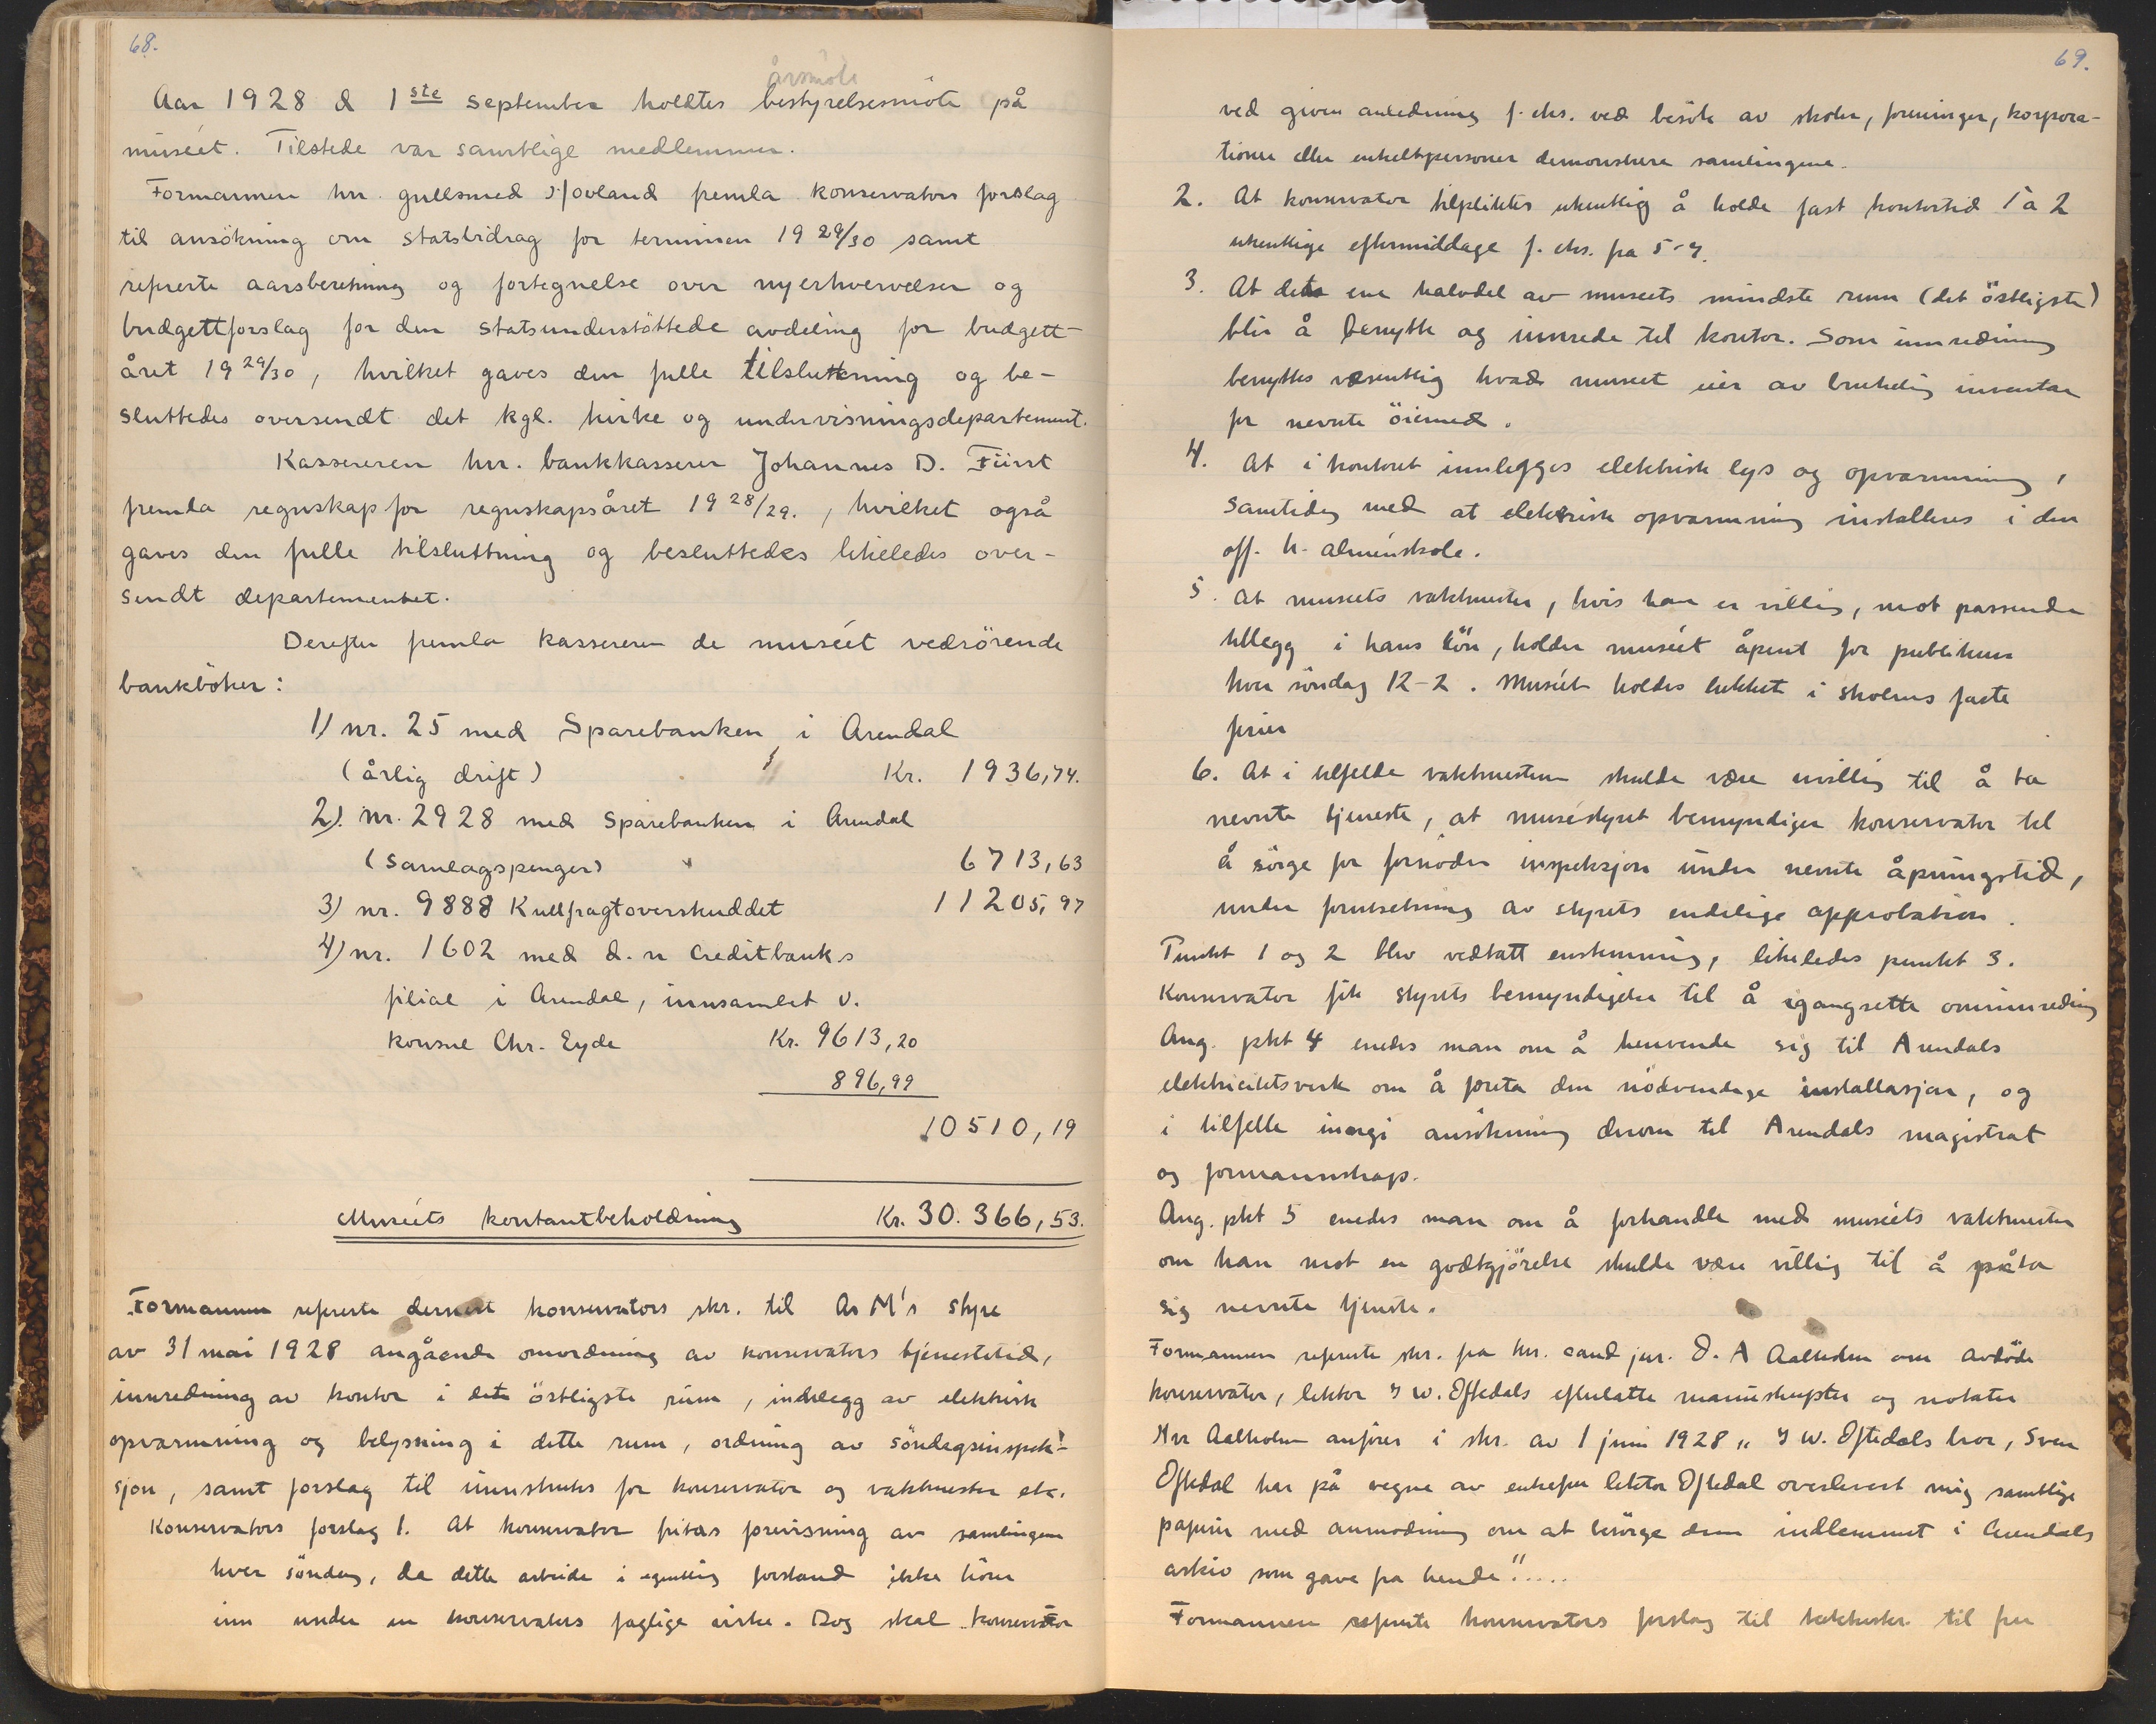 68.
årsmöte
Aar 1928 d 1ste september holdtes bestyrelsesmöte på
muséet. Tilstede var samtlige medlemmer.
Formannen hr. gullsmed Hovland fremla konservators forslag
til ansökning om statsbidrag for terminen 1929/30 samt
refererte aarsberetning og fortegnelse over nyerhvervelser og
budgettforslag for den statsunderstöttede avdeling for budgett-
året 1929/30, hvilket gaves den fulle tilslutning og be-
sluttedes oversendt det kgl. kirke og undervisningsdepartement.
Kassereren hr. bankkasserer Johannes D. Fürst
fremla regnskap for regnskapsåret 1928/29., hvilket også
gaves den fulle tilsluttning og besluttedes likeledes over-
sendt departementet.
Derefter fremla kassereren de muséet vedrörende
bankböker:
1) nr. 25 med Sparebanken i Arendal
(årlig drift) Kr. 1936,74.
2). nr. 2928 med Sparebanken i Arendal
(Samlagspenger) 6713,63
3) nr. 9888 Kullfragtoverskuddet 11205,97
4) nr. 1602 med d. n Creditbanks
filial i Arendal, innsamlet v.
konsul Chr. Eyde Kr. 9613,20
896,99
10510,19
Muséets kontantbeholdning Kr. 30.366,53.
Formannen refererte dernest konservators skr. til As M's styre
av 31 mai 1928 angående omordning av konservators tjenestetid,
innredning av kontor i det östligste rum, indlegg av elektrisk
opvarmning og belysning i dette rum, ordning av söndagsinspek-
sjon, samt forslag til innstruks for konservator og vaktmester etc.
Konservators forslag 1. At konservator fritas forevisning av samlingene
hver söndag, da dette arbeide i egentlig forstand ikke hörer
inn under en konservators faglige virke. Dog skal konservator
69.
ved given anledning f. eks. ved besök av skoler, foreninger, korpora-
tioner eller enkeltpersoner demonstrere samlingene.
2. At konservator tilpliktes ukentlig å holde fast kontortid 1 à 2
ukentlige eftermiddage f. eks. fra 5-7.
3. At det ene halvdel av museets mindste rum (det östligste)
blir å benytte og innrede til kontor. Som innredning
benyttes væsentlig hvad museet eier av brukelig inventar
for nevnte öiemed.
4. At i kontoret innlegges elektrisk lys og opvarmning,
samtidig med at elektrisk opvarmning installeres i den
off. h. almenskole.
5. At museets vaktmester, hvis han er villig, mot passende
tillegg i hans lön, holder muséet åpent for publikum
hver söndag 12-2. Muséet holdes lukket i skolens faste
ferier
6. At i tilfelde vaktmesteren skulde være uvillig til å ta
nevnte tjeneste, at muséstyret bemyndiger konservator til
å sörge for fornöden inspeksjon under nevnte åpningstid,
under forutsetning av styrets endelige approbation.
Punkt 1 og 2 blev vedtatt enstemmig, likeledes punkt 3.
Konservator fik styrets bemyndigelse til å igangsette ominnredning
Ang. pkt 4 enedes man om å henvende sig til Arendals
elektricitetsverk om å foreta den nödvendige installasjon, og
i tilfelle inngi ansökning derom til Arendals magistrat
og formannskap.
Ang. pkt 5 enedes man om å forhandle med muséets vaktmester
om han mot en godtgjörelse skulde være villig til å påta
sig nevnte tjeneste.
Formannen refererte skr. fra hr. cand jur. O. A Aalholm om avdöde
konservator, lektor J W. Oftedals efterlatte manuskripter og notater
Hr Aalholm anförer i skr. av 1 juni 1928 „ J W. Oftedals bror, Sven
Oftedal har på vegne av enkefru lektor Oftedal overlevert mig samtlige
papirer med anmodning om at besörge dem indlemmet i Arendals
arkiv som gave fra hende".....
Formannen refererte konservators forslag til takkeskr. til fru